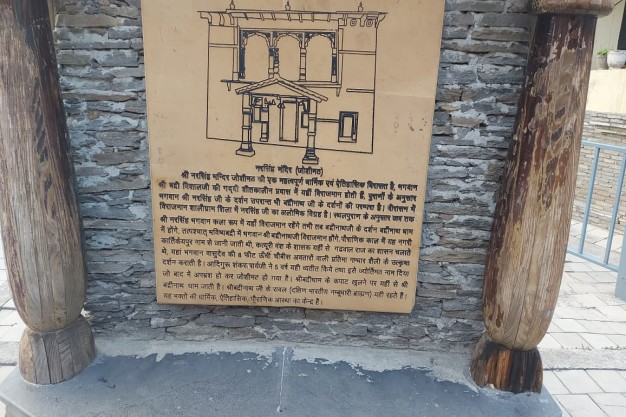 नरसिंह मंदिर (जोशीमठ)
श्री नरसिंह मन्दिर जोशीमठ की एक महत्वपूर्ण धार्मिक एवं ऐतिहासिक विरासत है, भगवान
श्री बद्री विशालजी की गद्दी शीतकालीन प्रवास में यहीं विराजमान होती है, पुराणों के अनुसार
भगवान श्री नरसिंह जी के दर्शन उपरान्त भी बद्रीनाथ जी के दर्शनों की परम्परा है। वीरासन में
विराजमान शालीग्राम शिला में नरसिंह जी का अलौकिक विग्रह है। स्थलपुराण के अनुसार जब तक
श्री नरसिंह भगवान कला रूप में यहाँ विराजमान रहेंगे तभी तक बद्रीनाथजी के दर्शन बद्रीनाथ धाम
में होंगे, तत्पश्चात् भविष्यबद्री में भगवान श्री बद्रीनाथजी विराजमान होंगे, पौराणिक काल में यह नगरी
कार्तिकेयपुर नाम से जानी जाती थी, कत्यूरी वंश के शासक यहीं से गढ़वाल राज का शासन चलाते
थे, यहां भगवान वासुदेव की 6 फीट ऊँची चौबीस अवतारों वाली प्रतिमा गन्धार शैली के उत्कृष्ठ
दर्शन कराती है। आदिगुरू शंकराचार्यजी ने 5 वर्ष यहीं व्यतीत किये तथा इसे ज्योतिर्मठ नाम दिया
जो बाद में अपभ्रंश हो कर जोशीमठ हो गया है। श्रीबद्रीधाम के कपाट खुलने पर यहीं से श्री
बद्रीनाथ धाम जाती है। श्रीबद्रीनाथ जी के रावल (दक्षिण भारतीय नम्बूदरी ब्राह्मण) यहीं रहते हैं।
यह नगरी की धार्मिक, ऐतिहासिक, पौराणिक आस्था का केन्द्र है।